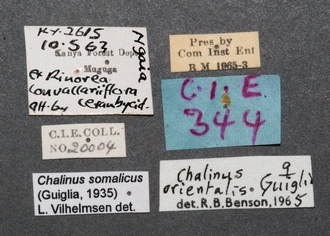 Ky.2615
10.5.63
Ngaia
Kenya Forest Dept
Muguga
ex Rinorea
convallariflora
att. by Cerambycid.
C.I.E.COLL.
NO.20004
Chalinus somalicus
(Guiglia, 1935)
L. Vilhelmsen det.
Pres by
Com Inst Ent
B M 1965-3
C.I.E.
344
Chalinus ♀
orientalis. Guiglia
det. R.B. Benson, 1965